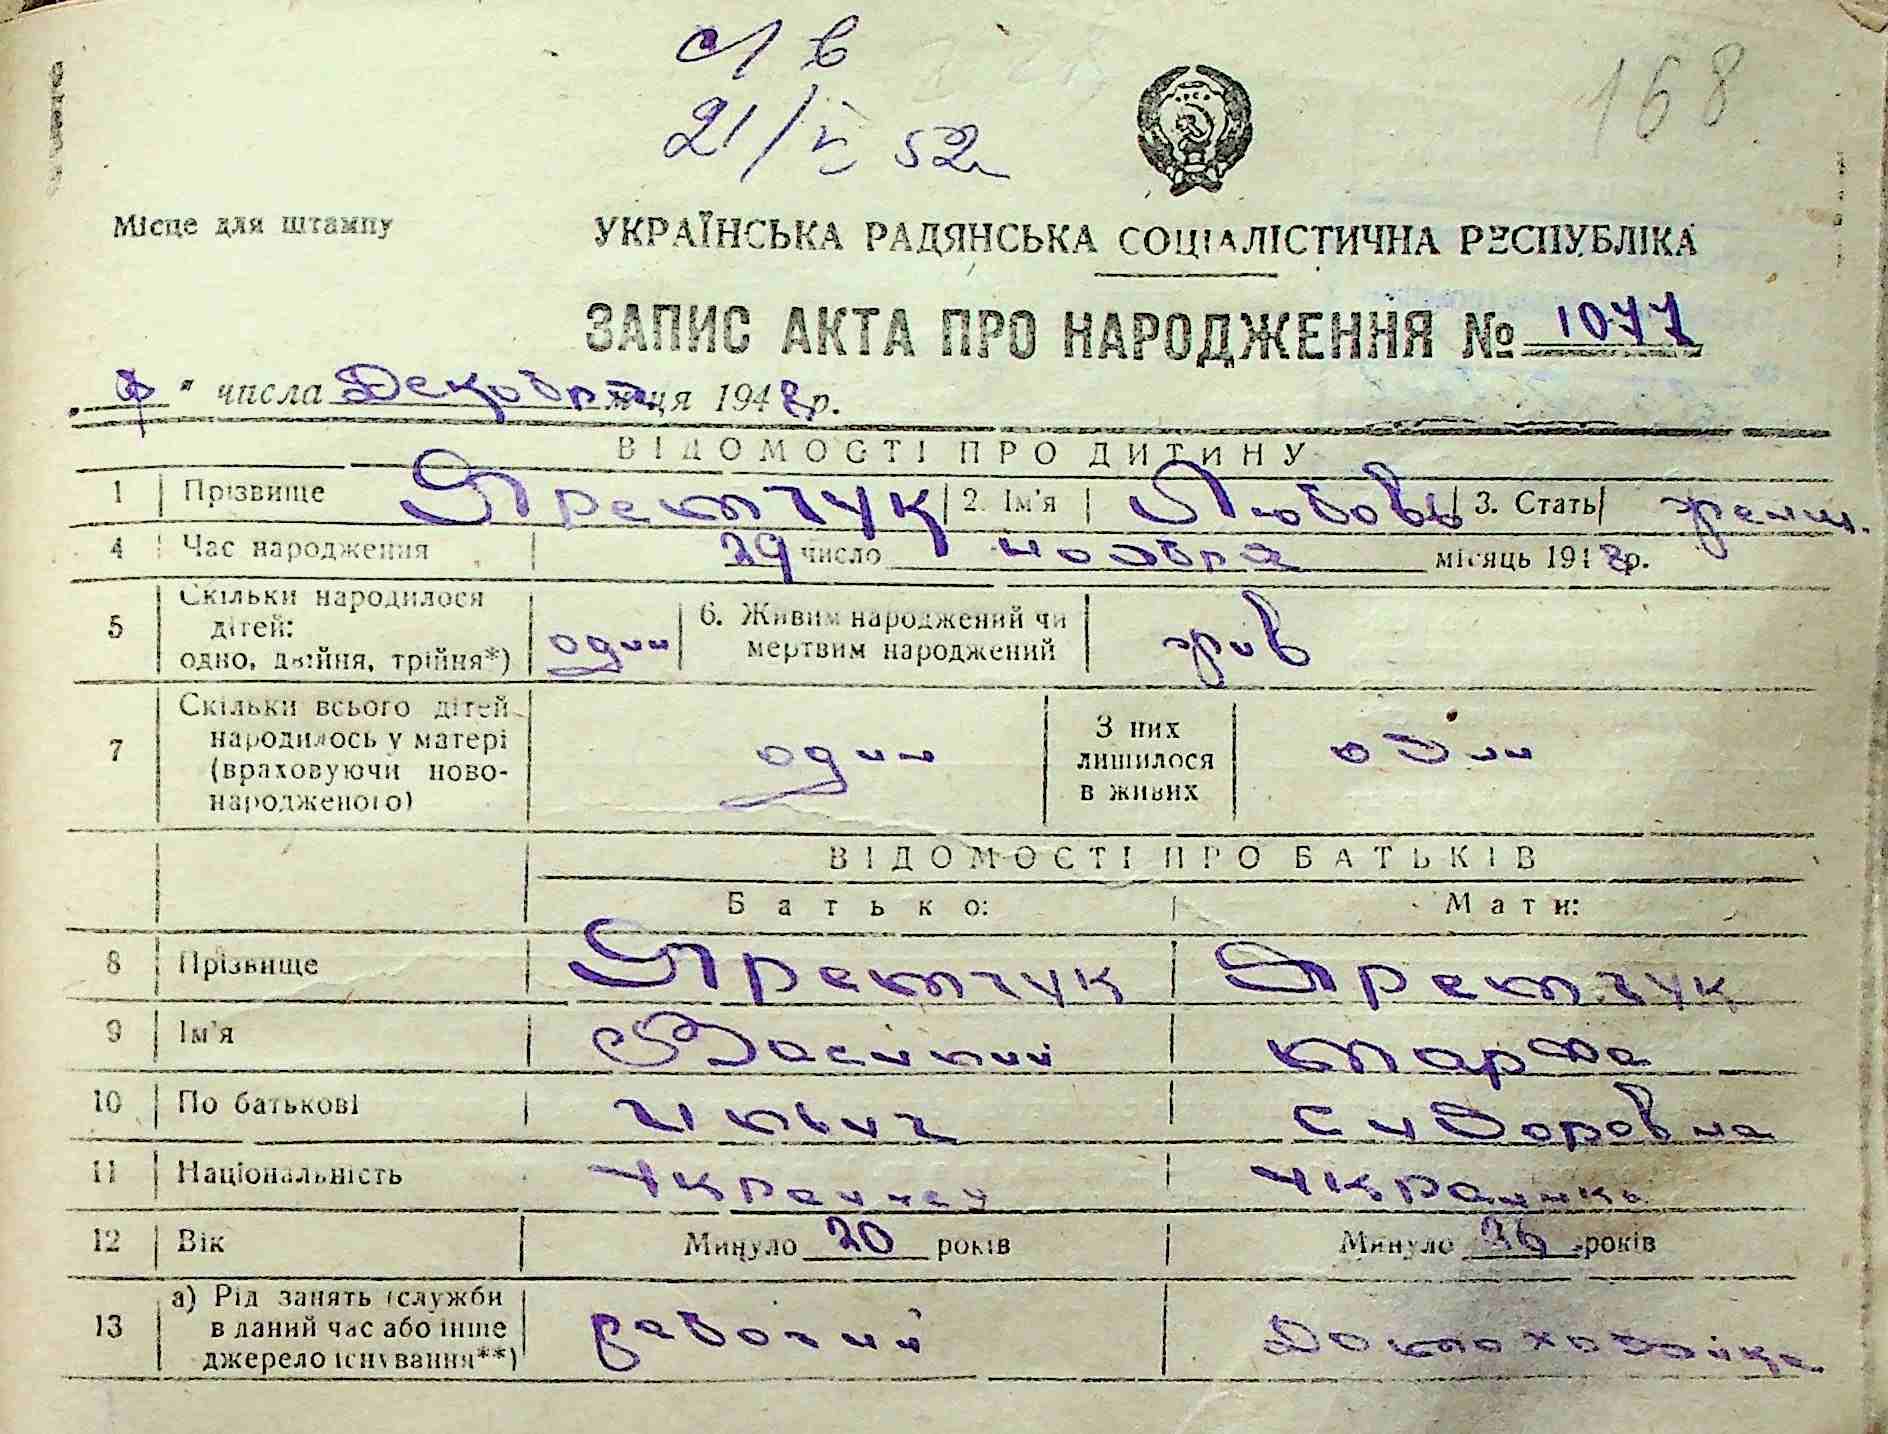 сл в
21/V 52
168
Місце для штампу
УКРАЇНСЬКА РАДЯНСЬКА СОЦІАЛІСТИЧНА РЕСПУБЛІКА
ЗАПИС АКТА ПРО НАРОДЖЕННЯ № 1077
" числа Декабря м-ця 1948 р.
ВІДОМОСТІ ПРО ДИТИНУ
1 Прізвище Яремчук 2. Ім'я Любовь 3. Стать женщ.
4 Час народження 29 число ноября місяць 1948 р.
5 Скільки народилося дітей: одно, двійня, трійня*) один 6. Живим народжений чи мертвим народжений жив
7 Скільки всього дітей народилось у матері (враховуючи новонародженого) один З них лишилося в живих один
ВІДОМОСТІ ПРО БАТЬКІВ
Батько: Мати:
8 Прізвище Яремчук Яремчук
9 Ім'я Василий Марфа
10 По батькові Ильич Сидоровна
11 Національність Украинец Украинка
12 Вік Минуло 20 років Минуло 26 років
13 а) Рід занять (служби в даний час або інше джерело існування**) рабочий Домохозяйка